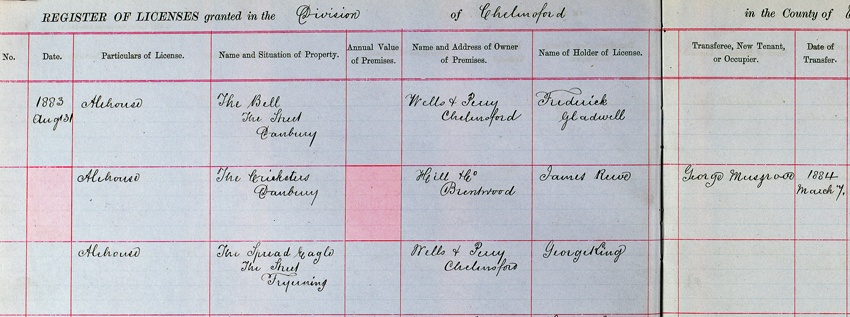 REGISTER OF LICENSES granted in the Division of Chelmsford in the County of
No. Date. Particulars of License. Name and Situation of Property. Annual Value of Premises. Name and Address of Owner of Premises. Name of Holder of License. Transferee, New Tenant, or Occupier. Date of Transfer.
1883 Alehouse The Bell Wells & Perry Frederick
Augt 31 The Street Chelmsford Gladwell
Danbury
Alehouse The Cricketers Hill & Co James Reeve George Musgrove 1884
Danbury Brentwood March 7.
Alehouse The Spread Eagle Wells & Perry George King
The Street Chelmsford
Fryerning